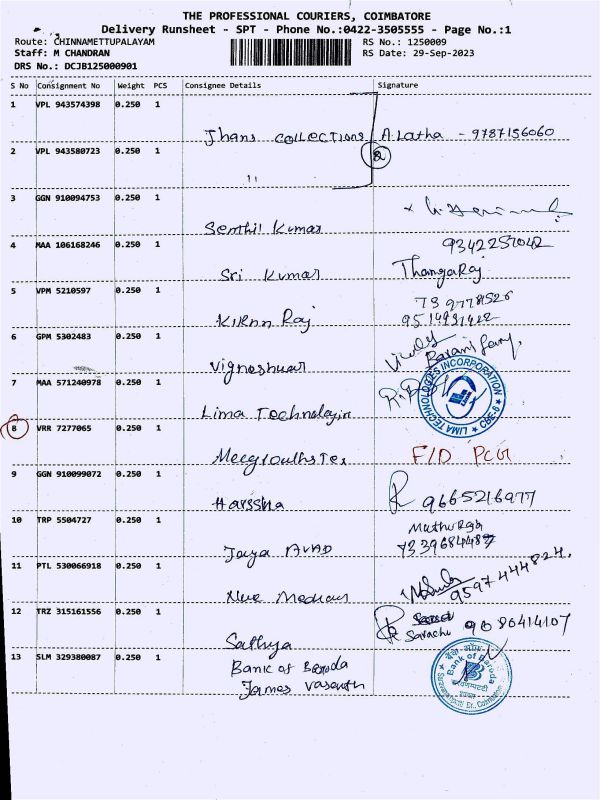 THE PROFESSIONAL COURIERS, COIMBATORE
Delivery Runsheet - SPT - Phone No.:0422-3505555 - Page No.:1
Route: CHINNAMETTUPALAYAM RS No.: 1250009
Staff: M CHANDRAN RS Date: 29-Sep-2023
DRS No.: DCJB125000901
S No Consignment No Weight PCS Consignee Details Signature
1 VPL 943574398 0.250 1
Jhans COLLECTIONS A.Latha - 9787156060
2 VPL 943580723 0.250 1
"
3 GGN 910094753 0.250 1
Senthil Kumar
4 MAA 106168246 0.250 1 9342257042
Sri Kumar ThangaRaj
5 VPM 5210597 0.250 1
KIRAN Raj
6 GPM 5302483 0.250 1
Vigneshwar
7 MAA 571240978 0.250 1
LIMA TECHNOLOGIES INCORPORATION ★ CBE-6 ★
Lima Technologin
8 VRR 7277065 0.250 1
F/D PCG
9 GGN 910099072 0.250 1
Harssha 9665216977
10 TRP 5504727 0.250 1
Jaya
11 PTL 530066918 0.250 1
9597444824.
12 TRZ 315161556 0.250 1
Sarachi 9080414107
Sathya
13 SLM 329380087 0.250 1
Bank of Baroda
James Vasanth
Bank of Baroda